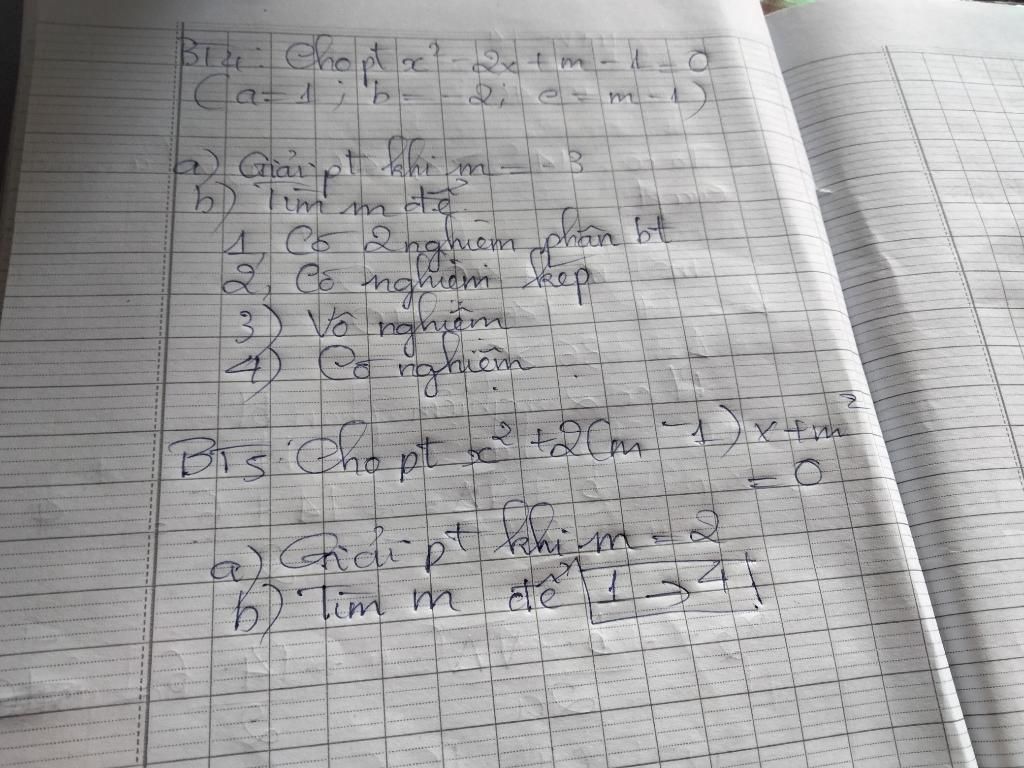 BT4: Cho pt x² - 2x + m - 1 = 0
( a = 1 ; b = - 2; c = m - 1)
a) Giải pt khi m = - 3
b) Tìm m để
1, Có 2 nghiệm phân bt
2, Có nghiệm kép
3) Vô nghiệm
4) Có nghiệm
BT5: Cho pt x² + 2(m - 1) x + m²
= 0
a) Giải pt khi m = 2
b) Tìm m để 1 → 4